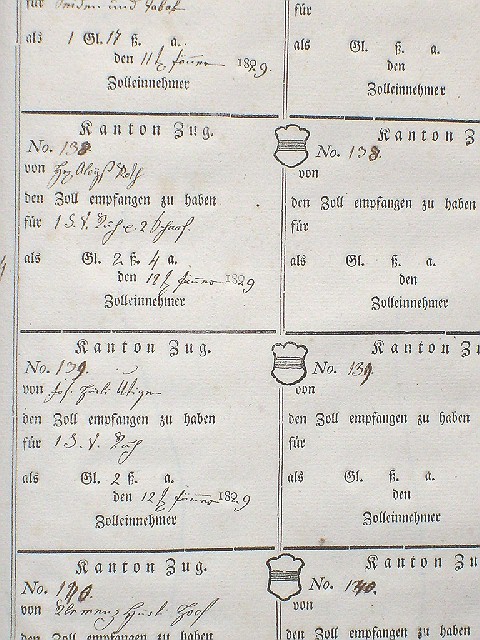 für Seiden und Tabak
als 1 Gl. 17 ß. a.
den 11t Jänner 1829.
Zolleinnehmer
Kanton Zug.
No. 138
von
den Zoll empfangen zu haben
für 1 S. V. Kuh e. 2 Schaaf.
als Gl. 2 ß. 4 a.
den Jänner 1829
Zolleinnehmer
Kanton Zug.
No. 139.
von Jos.
den Zoll empfangen zu haben
für 1 S. V. Kuh
als Gl. 2 ß. a.
den 12t Jänner 1829
Zolleinnehmer
Kanton Zug.
No. 140.
von Clemenz
den Zoll empfangen zu haben
für
als Gl. ß. a.
den
Zolleinnehmer
Kanton Z
No. 138.
von
den Zoll empfangen zu haben
für
als Gl. ß. a.
den
Zolleinnehmer
Kanton Zu
No. 139
von
den Zoll empfangen zu haben
für
als Gl. ß. a.
den
Zolleinnehmer
Kanton Zu
No. 140.
von
den Zoll empfangen zu haben